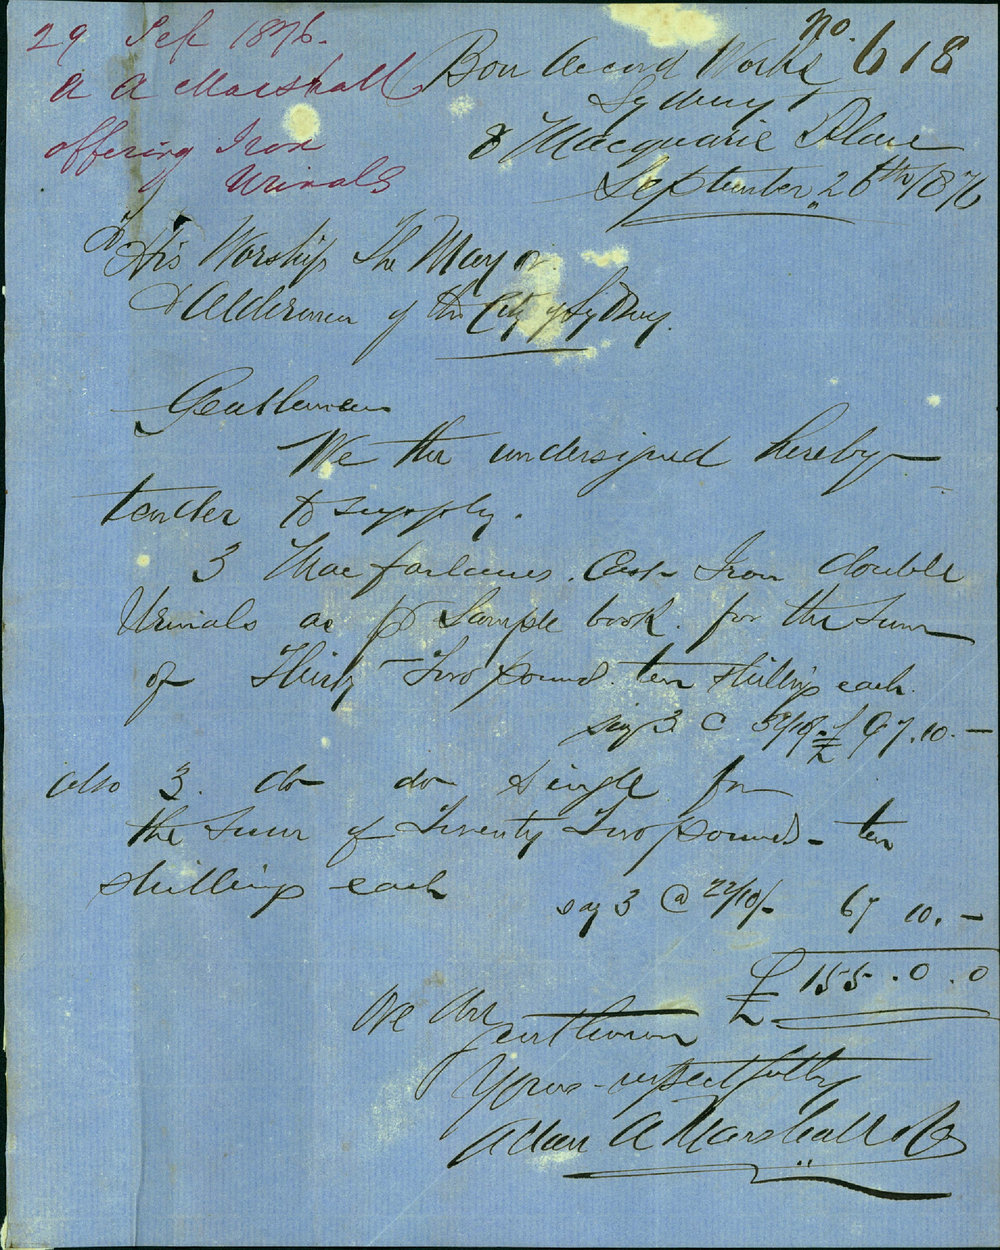 29 Sep 1876.
A A Marshall
offering Iron
Urinals
No. 618
Bon Accord Works
Sydney
& Macquarie Place
September 26th/1876
To His Worship The Mayor
& Aldermen of the City of Sydney.
Gentlemen
We the undersigned hereby
tender to supply.
3 Macfarlanes. Cast Iron double
Urinals as p Sample book. for the sum
of Thirty Two pound. ten shillings each.
say 3 @ 32/10/- £ 97.10.-
also 3. do do single for
the sum of Twenty Two pounds - ten
shillings each
say 3 @ 22/10/- 67 10.-
£ 155.0.0
We are
gentlemen
Yours respectfully
Allan A Marshall & Co